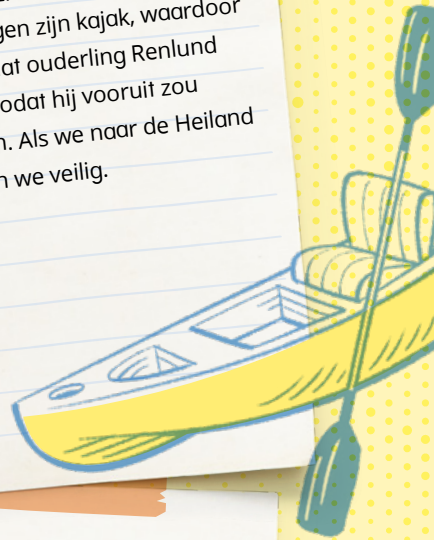 gen zijn kajak, waardoor
at ouderling Renlund
odat hij vooruit zou
n. Als we naar de Heiland
n we veilig.